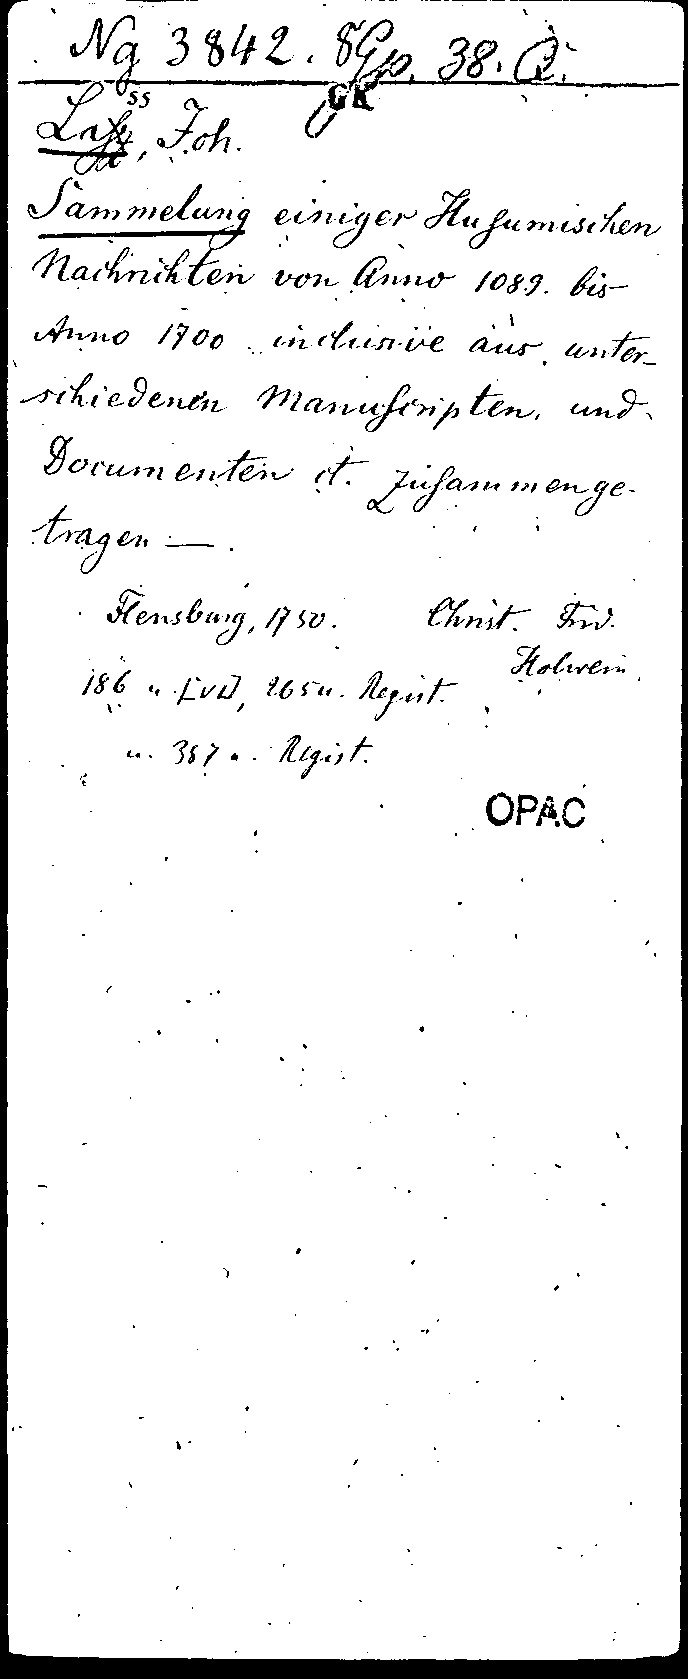 Ng 3842. 8° Gp. 38. Q.
GK
Lass, Joh.
Sammelung einiger Husumischen
Nachrichten von Anno 1089. bis
Anno 1700 inclusive aus unter-
schiedenen Manuscripten, und
Documenten ct. zusammenge-
tragen —.
Flensburg, 1750. Christ. Frid.
Holwein
186 u. [VI], 265 u. Regist.
u. 357 u. Regist.
OPAC